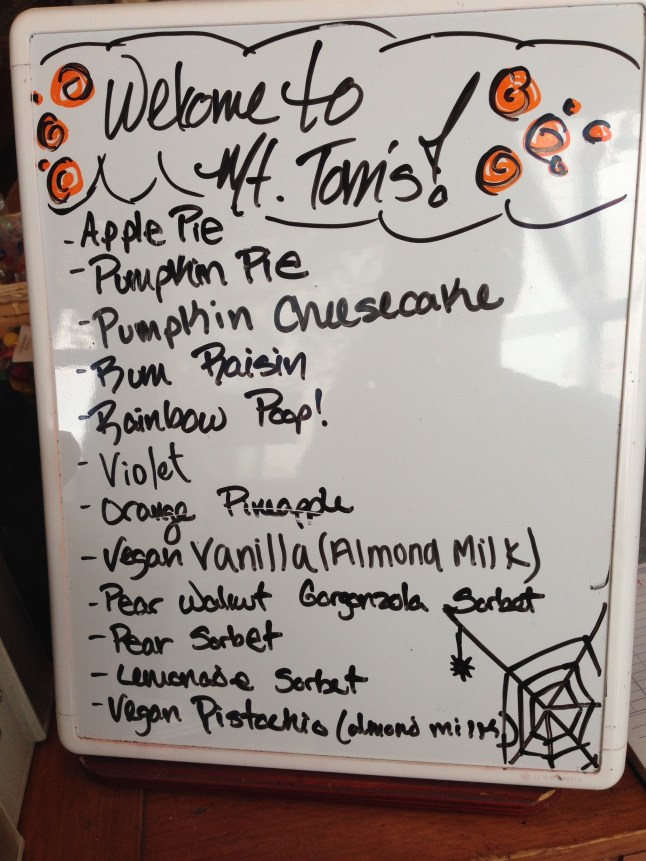 Welcome to
Mt. Tom's!
- Apple Pie
- Pumpkin Pie
- Pumpkin Cheesecake
- Rum Raisin
- Rainbow Poop!
- Violet
- Orange Pineapple
- Vegan Vanilla (Almond Milk)
- Pear Walnut Gorgonzola Sorbet
- Pear Sorbet
- Lemonade Sorbet
- Vegan Pistachio (almond milk)